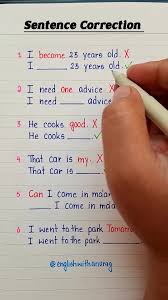 Sentence Correction
1 I become 23 years old. X
I ______ 23 years old. ✓
2 I need one advice X
I need ______ advice
3 He cooks good. X
He cooks ______
4 That car is my. X
That car is ______
5 Can I come in ma'am
______ I come in ma'am
6 I went to the park
I went to the park ______
@englishwithanurag